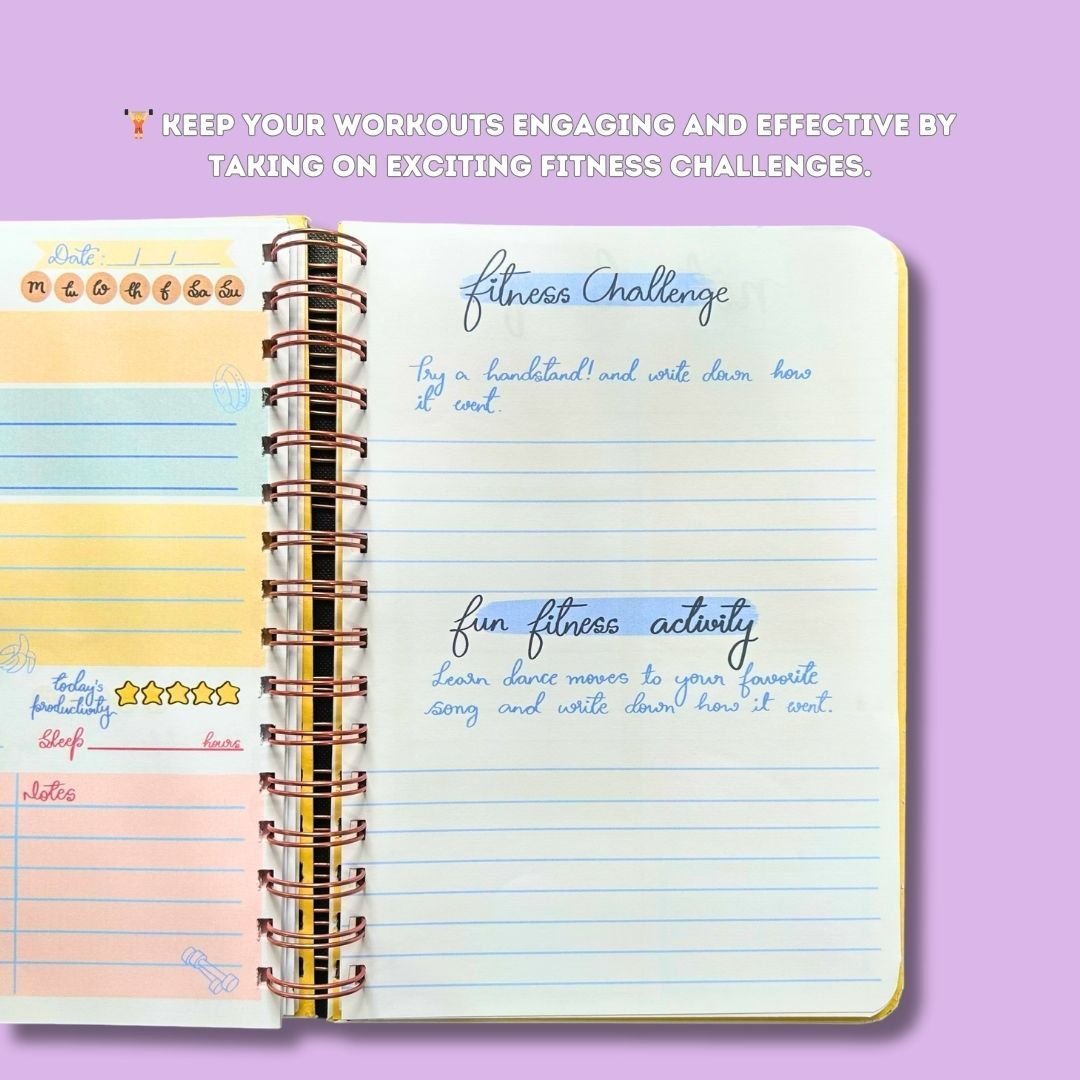 🏋️ KEEP YOUR WORKOUTS ENGAGING AND EFFECTIVE BY
TAKING ON EXCITING FITNESS CHALLENGES.
Date: __/__/__
m tu w th f Sa Su
today's
productivity
Sleep ________ hours
Notes
fitness Challenge
Try a handstand! and write down how
it went.
fun fitness activity
Learn dance moves to your favorite
song and write down how it went.